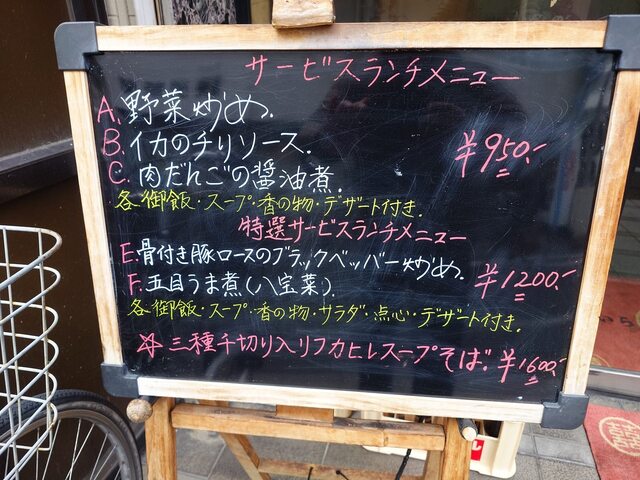 サービスランチメニュー
A. 野菜炒め.
B. イカのチリソース.
C. 肉だんごの醤油煮.
¥950.-
各御飯・スープ・香の物・デザート付き.
特選サービスランチメニュー
E. 骨付き豚ロースのブラックペッパー炒め.
F. 五目うま煮(八宝菜).
¥1200.-
各御飯・スープ・香の物・サラダ・点心・デザート付き.
☆三種千切り入りフカヒレスープそば. ¥1600.-